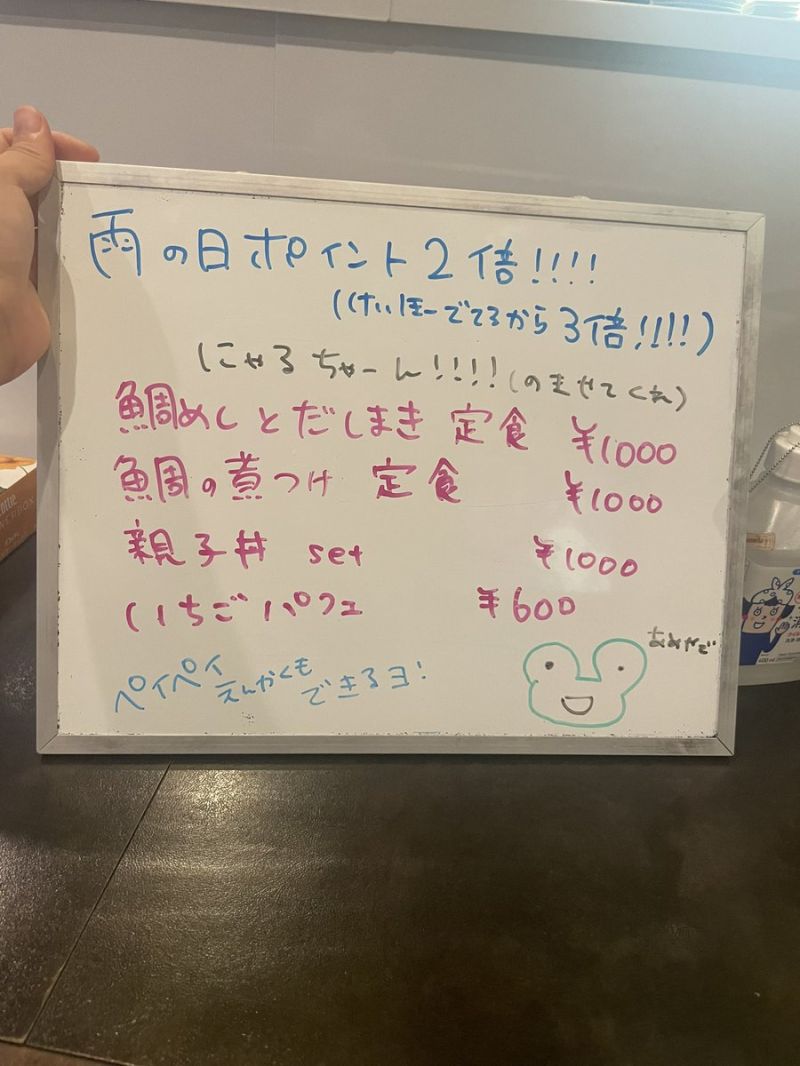 雨の日ポイント2倍!!!!
((けいほーでてるから3倍!!!!)
にゃるちゃーん!!!!(のませてくれ)
鯛めしとだしまき 定食 ¥1000
鯛の煮つけ 定食 ¥1000
親子丼 set ¥1000
いちごパフェ ¥600
ペイペイえんかくもできるヨ!